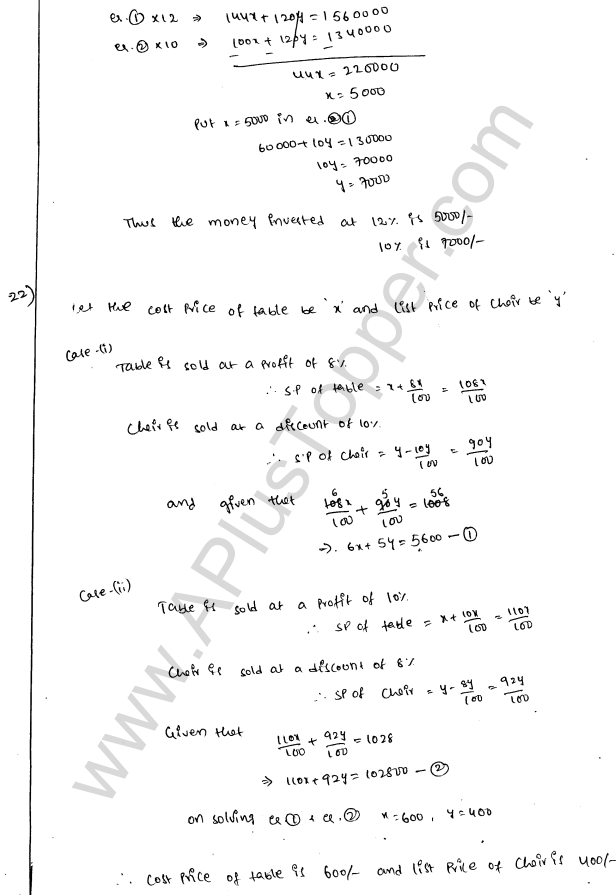 er.① ×12 ⇒ 144x + 120y = 1560000
er.② ×10 ⇒ 100x + 120y = 1340000
44x = 220000
x = 5000
Put x = 5000 in er.①
60000 + 10y = 130000
10y = 70000
y = 7000
Thus the money invested at 12% is 5000/-
10% is 7000/-
22) let the cost Price of table be 'x' and list Price of Chair be 'y'
Case-(i)
Table is sold at a Profit of 8%
∴ S.P of table = x + 8x/100 = 108x/100
Chair is sold at a discount of 10%
∴ S.P of Chair = y - 10y/100 = 90y/100
6 5 56
and given that 108x/100 + 90y/100 = 1008
⇒ 6x + 5y = 5600 — ①
Case-(ii)
Table is sold at a Profit of 10%
∴ SP of table = x + 10x/100 = 110x/100
Chair is sold at a discount of 8%
∴ SP of Chair = y - 8y/100 = 92y/100
Given that 110x/100 + 92y/100 = 1028
⇒ 110x + 92y = 102800 — ②
on solving er ① & er.② x = 600, y = 400
∴ Cost Price of table is 600/- and list Price of Chair is 400/-
www.APlusTopper.com